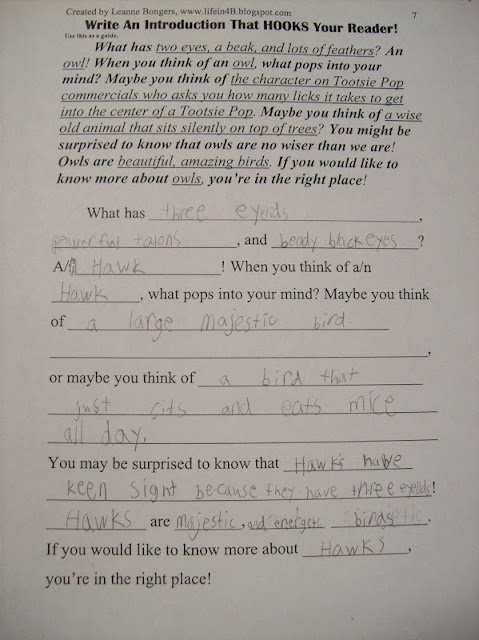 Created by Leanne Bongers, www.lifein4B.blogspot.com 7
Write An Introduction That HOOKS Your Reader!
Use this as a guide.
What has two eyes, a beak, and lots of feathers? An
owl! When you think of an owl, what pops into your
mind? Maybe you think of the character on Tootsie Pop
commercials who asks you how many licks it takes to get
into the center of a Tootsie Pop. Maybe you think of a wise
old animal that sits silently on top of trees? You might be
surprised to know that owls are no wiser than we are!
Owls are beautiful, amazing birds. If you would like to
know more about owls, you're in the right place!
What has three eyelids,
powerful talons, and beady black eyes?
A/n Hawk! When you think of a/n
Hawk, what pops into your mind? Maybe you think
of a large majestic bird.
,
or maybe you think of a bird that
just cits and eats mice
all day.
You may be surprised to know that Hawks have
keen sight because they have three eyelids!
Hawks are majestic, and energetic birds.
If you would like to know more about Hawks,
you're in the right place!